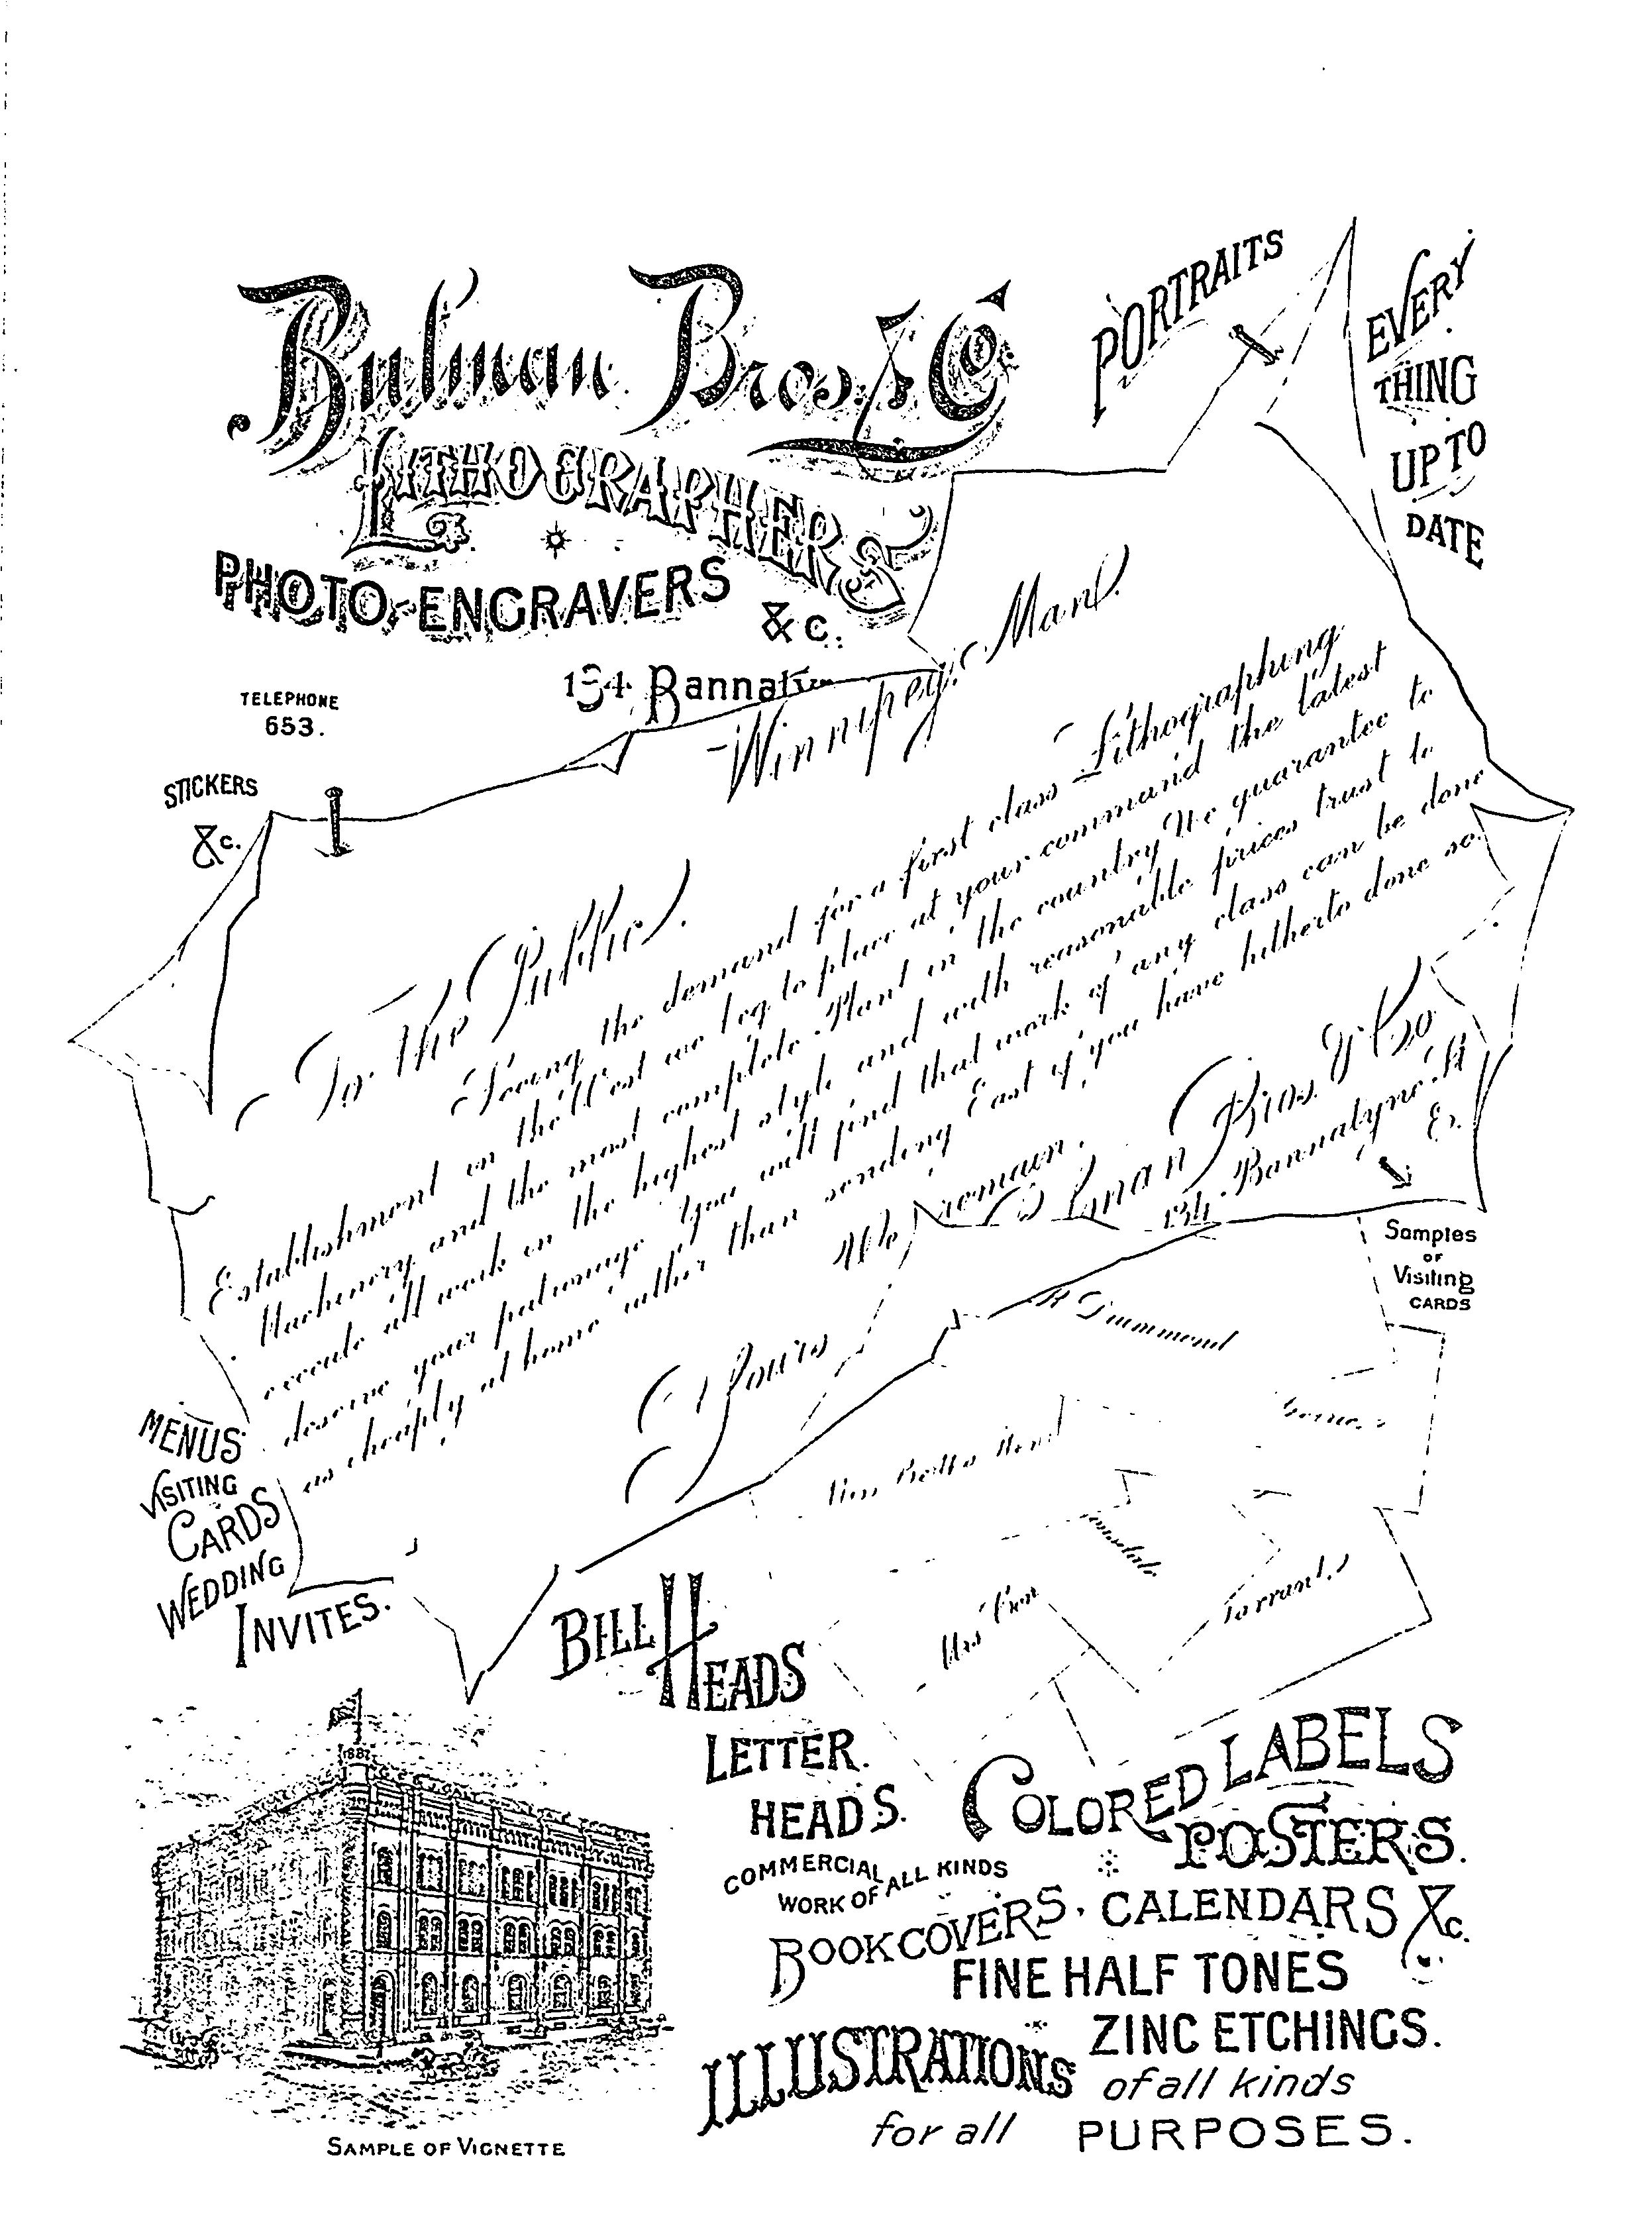 Bulman Bros. & Co.
LITHOGRAPHERS
PHOTO-ENGRAVERS
&c.
134 Bannatyne
TELEPHONE
653.
PORTRAITS
EVERY
THING
UP TO
DATE
STICKERS
&c.
Winnipeg. Man.
To The Public.
Seeing the demand for a first class Lithographing
Establishment in the West we beg to place at your command the latest
Machinery and the most complete Plant in the country We guarantee to
execute all work in the highest style and with reasonable prices trust to
deserve your patronage You will find that work of any class can be done
as cheaply at home rather than sending East if you have hitherto done so.
We remain.
Yours
Bulman Bros. & Co
134. Bannatyne St
E.
Samples
OF
Visiting
CARDS
Drummond
Miss
Mrs
Tarrant.
MENUS
VISITING
CARDS
WEDDING
INVITES.
BILL HEADS
LETTER.
HEADS.
COMMERCIAL
WORK OF ALL KINDS
COLORED LABELS
POSTERS.
BOOKCOVERS. CALENDARS &c.
FINE HALF TONES
ZINC ETCHINGS.
of all kinds
ILLUSTRATIONS
for all PURPOSES.
1882
SAMPLE OF VIGNETTE